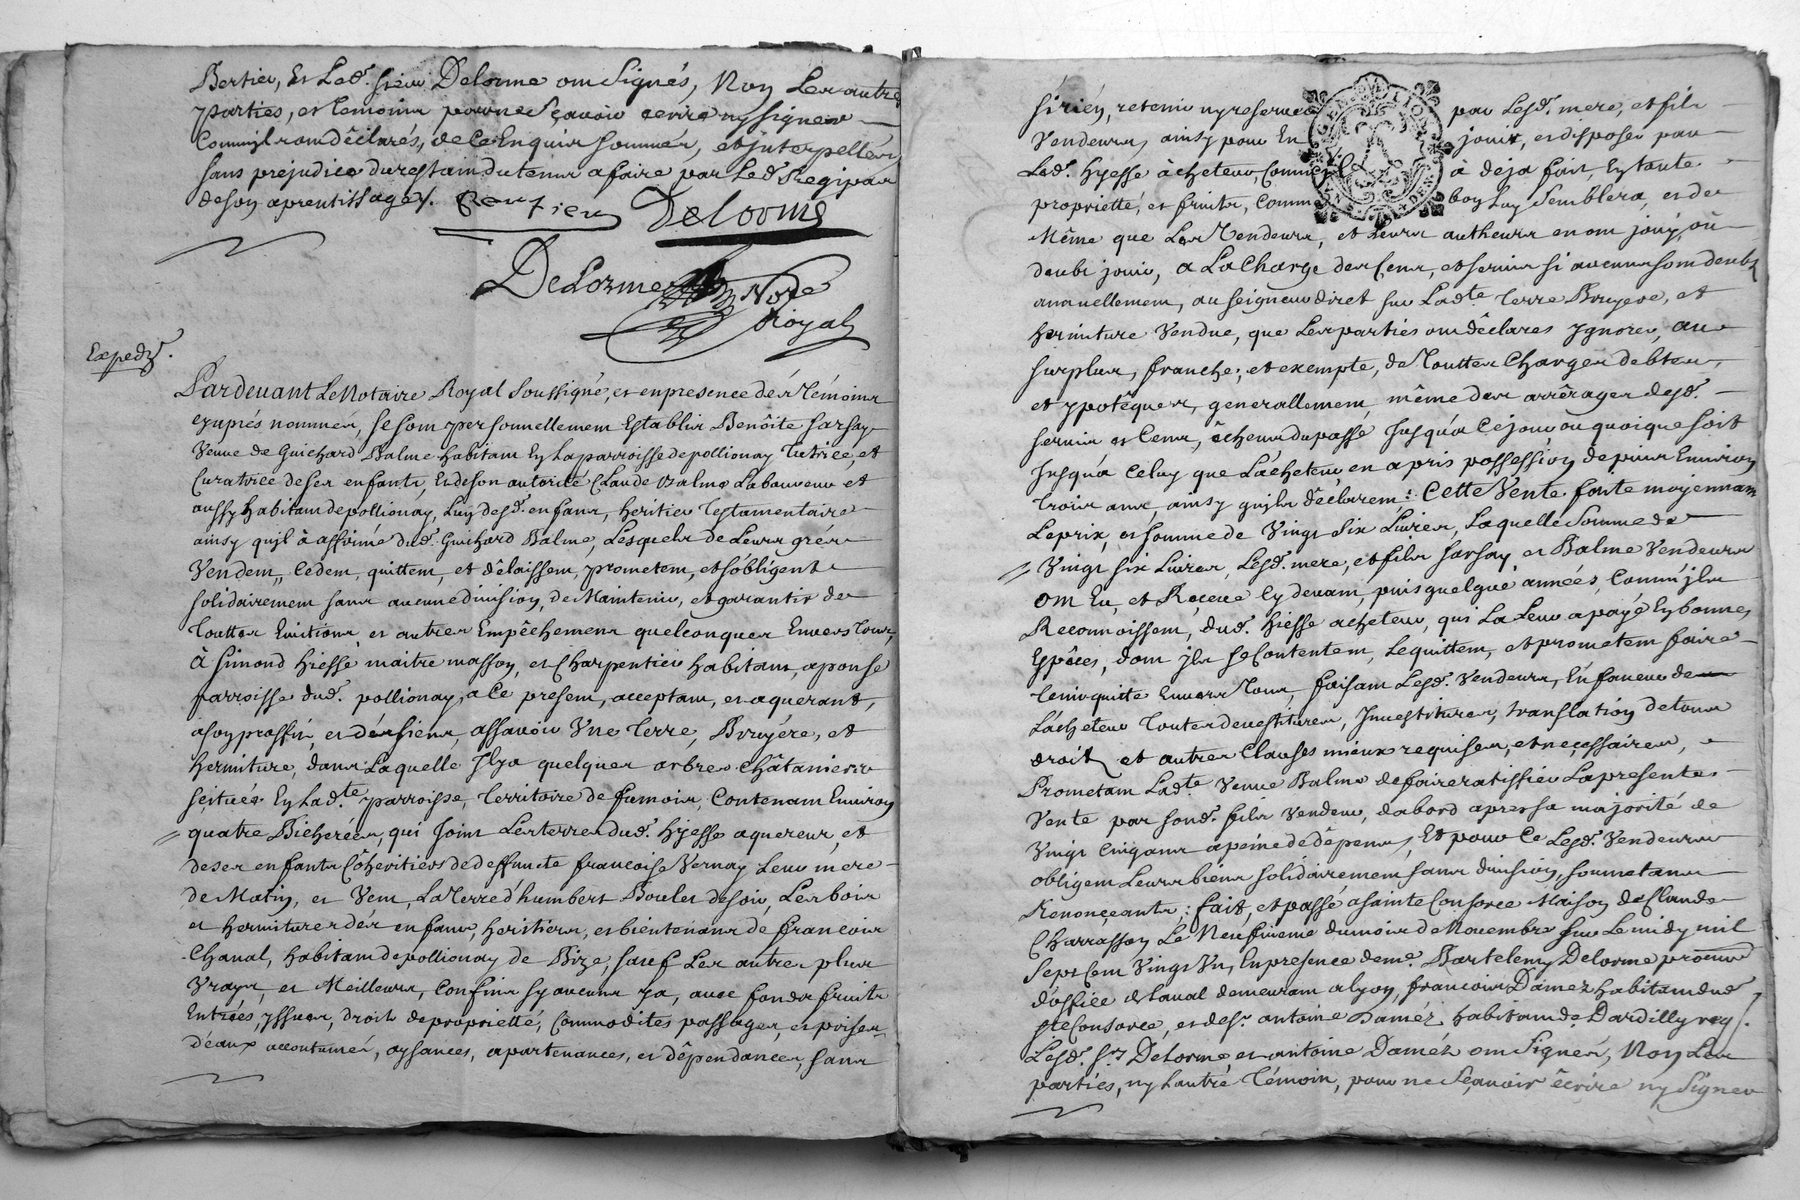 Bertier, Et Led. sieur Delorme ont signés, Non les autres
parties, et temoins pour ne sçavoir ecrire ny signer
Comm'jl ont déclarés, de Ce Enquis sommés, et jnterpellés
sans prejudice du restant du tems a faire par Led
de son aprentissage /. Bertier Delorme
DeLorme Nore
Royal
Expedié.
Pardevant Le Notaire Royal soussigné, et en presence dés témoins
cy aprés nommés, se sont personnellement Establis Benôite sarsay
Veuve de Guichard Balme habitant En La parroisse de pollionay Tutrice, et
Curatrice de ses enfants, Et de son autorité Claude Balme Laboureur et
aussy habitant de pollionay, L'un desd. enfans, heritier Testamentaire
ainsy qu'jl à affirmé dud. Guichard Balme, Lesquels de Leurs grés
Vendent, Cedent, quittent, et délaissent, prometent, et s'obligent
solidairement sans aucune division, de Maintenir, et garantir de
Touttes Evictions, et autres Empêchemens quelconques Envers tous,
À simond hiesse maitre masson, et Charpentier habitant, aponse
parroisse dud. pollionay, a Ce present, acceptant, et aquerant,
a son proffit, et dés siens, assavoir Une terre, Bruyére, et
hermiture, dans Laquelle Jl ya quelques arbres Châtaniers
scituée En Lad.te parroisse, territoire de fumoir, Contenant Environ
quatre Bicherées, qui joint Les terres dud. hyesse aquereur, et
de ses enfants Côheritiers de deffuncte francoise Vernay Leur mere
de Matin, et Vent, La terre d'humbert Boulet de soir, Les bois
et hermitures dés enfans, heritiers, et bientenans de francois
Chanal, habitant de pollionay de Bize, sauf Les autres plus
Vrays, et Meilleurs, Confins sy aucuns ya, avec fonds fruits
Entrées, yssues, droits de proprietté, Commodites passages, et prises
d'eaux accoutumés, aysances, apartenances, et dêpendances, sans
si rién, retenir ny reserver par Lesd. mere, et fils
Vendeurs, ainsy pour En jouir, et disposer par
Led. hyesse âcheteur, Comme jl à déja fait, En toute
proprietté, et fruits, Comme bon Luy semblera, et de
Même que Les Vendeurs, et Leurs autheurs en ont jouy, où
deubt jouir, a La Charge des Cens, et servis si aucuns sont deubs
annuellement, au seigneur diret sur Lad.te terre Bruyere, et
hermiture Vendue, que Les parties ont déclarés ygnorer, au
surplus, franche, et exempte, de Touttes Charges debtes,
et ypotêques, generallement, même des arrérages desd.
servis et Cens, échens du passé Jusqu'a Ce jour ou quoique soit
Jusqu'a Celuy que L'acheteur, en a pris possession, depuis Environ
trois ans, ainsy qu'jls déclarent: Cette Vente faite moyennant
Le prix, et somme de Vingt six Livres, Laquelle somme de
Vingt six Livres, Lesd. mere, et fils sarsay et Balme Vendeurs
Ont Eu, et Receue Cy devant, puis quelque années, Comm'jls
Reconnoissent, dud. hiesse acheteur, qui La Leur a payé En bonnes
Espéces, dont jls se Contentent, Le quittent, et prometent faire
tenir quitte Envers tous, faisant Lesd. Vendeurs, En faveur de
L'acheteur toutes devestitures, Jnvestitures, translation de tous
droits et autres Clauses mieux requises, et necessaires,
Prometant Lad.te Veuve Balme de faire ratiffier La presente
Vente par sond. fils Vendeur, d'abord apres sa majorité de
Vingt Cinq ans a peine de dêpens, Et pour Ce Lesd. Vendeurs
obligent Leurs biens solidairement sans division, soumetans
Renonçeants: fait, et passé a sainte Consorce Maison de Claude
Charrasson Le Neufvieme du mois de Novembre sur Le midy mil
sept Cent Vingt Un, En presence de me. Bartelemy Delorme procureur
d'office de Laval demeurant a Lyon, francois Daméz habitant dud
ste Consorce, et de sr. antoine Daméz habitant de Dardilly
Lesd. sr. Delorme et antoine Daméz ont signés, Non Les
parties, ny L'autre témoin, pour ne sçavoir écrire ny signer